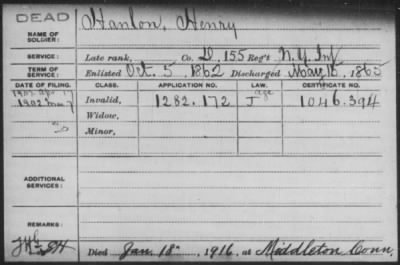 DEAD
Hanlon, Henry
NAME OF SOLDIER:
SERVICE: Late rank, Co. D, 155 Reg't N.Y. Inf
TERM OF SERVICE: Enlisted Oct. 5, 1862 Discharged May 15, 1865
DATE OF FILING. CLASS. APPLICATION NO. LAW. CERTIFICATE NO.
1902 May 7 Invalid, 1282.172 J age 1046.394
Widow,
Minor,
ADDITIONAL SERVICES:
REMARKS:
Died Jan. 18", 1916, at Middleton Conn.